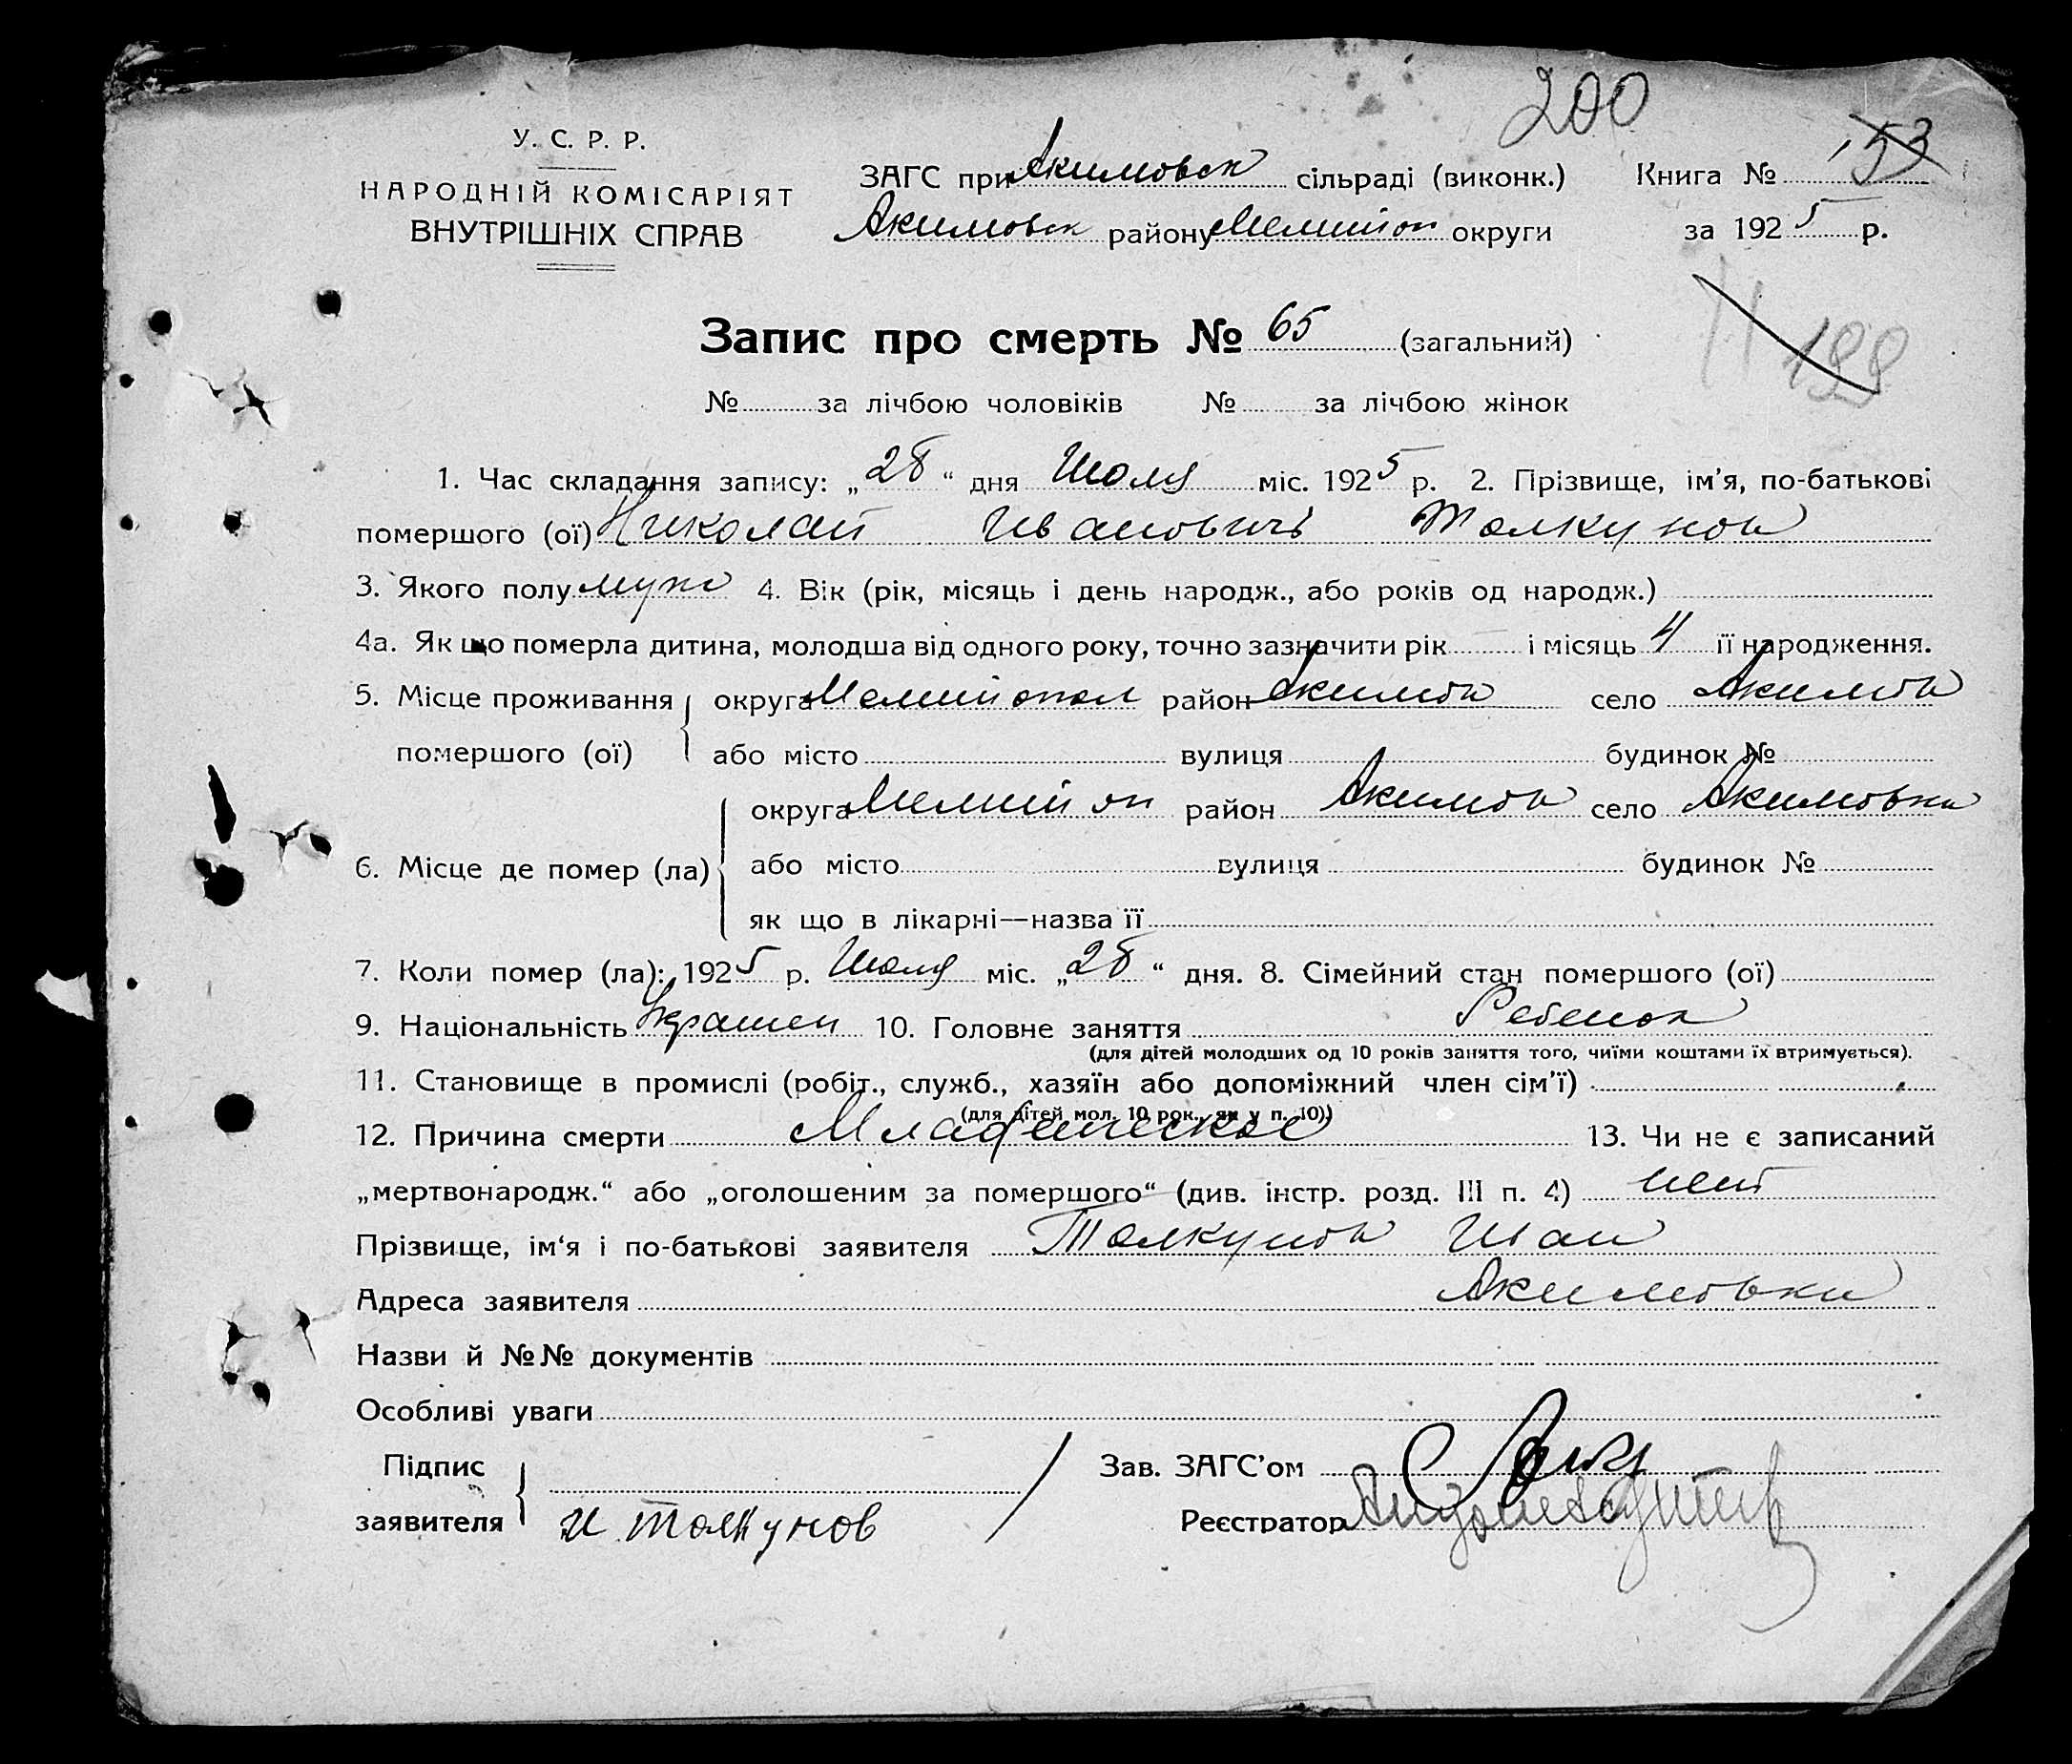 200
У. С. Р. Р.
НАРОДНІЙ КОМІСАРІЯТ
ВНУТРІШНІХ СПРАВ
ЗАГС при Акимовск сільраді (виконк.) Книга № 53
Акимовск району Мелитоп округи за 1925 р.
199
Запис про смерть № 65 (загальний)
№ за лічбою чоловіків № за лічбою жінок
1. Час складання запису: „28“ дня Июля міс. 1925 р. 2. Прізвище, ім’я, по-батькові
помершого (ої) Николай Ивановичъ Толкунов
3. Якого полу муж 4. Вік (рік, місяць і день народж., або років од народж.)
4а. Як що померла дитина, молодша від одного року, точно зазначити рік і місяць 4 її народження.
5. Місце проживання округа Мелитопол район Акимов село Акимов
помершого (ої) або місто вулиця будинок №
округа Мелитоп район Акимов село Акимовка
6. Місце де помер (ла) або місто вулиця будинок №
як що в лікарні—назва її
7. Коли помер (ла): 1925 р. Июля міс. „28“ дня. 8. Сімейний стан помершого (ої)
9. Національність Украинец 10. Головне заняття Ребенок
(для дітей молодших од 10 років заняття того, чиїми коштами їх втримується).
11. Становище в промислі (робіт., служб., хазяїн або допоміжний член сім’ї)
(для дітей мол. 10 рок., як у п. 10))
12. Причина смерти Младенческое 13. Чи не є записаний
„мертвонародж.“ або „оголошеним за помершого“ (див. інстр. розд. III п. 4) нет
Прізвище, ім‘я і по-батькові заявителя Толкунов Иван
Адреса заявителя Акимовка
Назви й №№ документів
Особливі уваги
Підпис Зав. ЗАГС’ом
заявителя и Толкунов Реєстратор